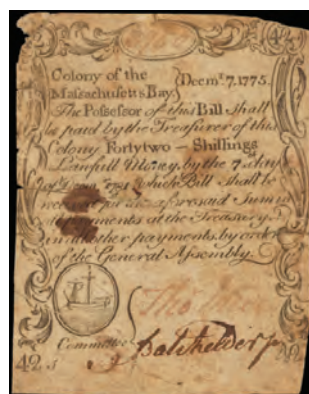 Colony of the
Massachusetts Bay.
Decmr. 7. 1775.
The Possessor of this Bill shall
be paid by the Treasurer of this
Colony Fortytwo — Shillings
Lawfull Money, by the 7 day
of which Bill shall be
received for the aforesaid Sum in
payments at the Treasury
in all other payments, by order
of the General Assembly.
Committee
42 s
Batchelder